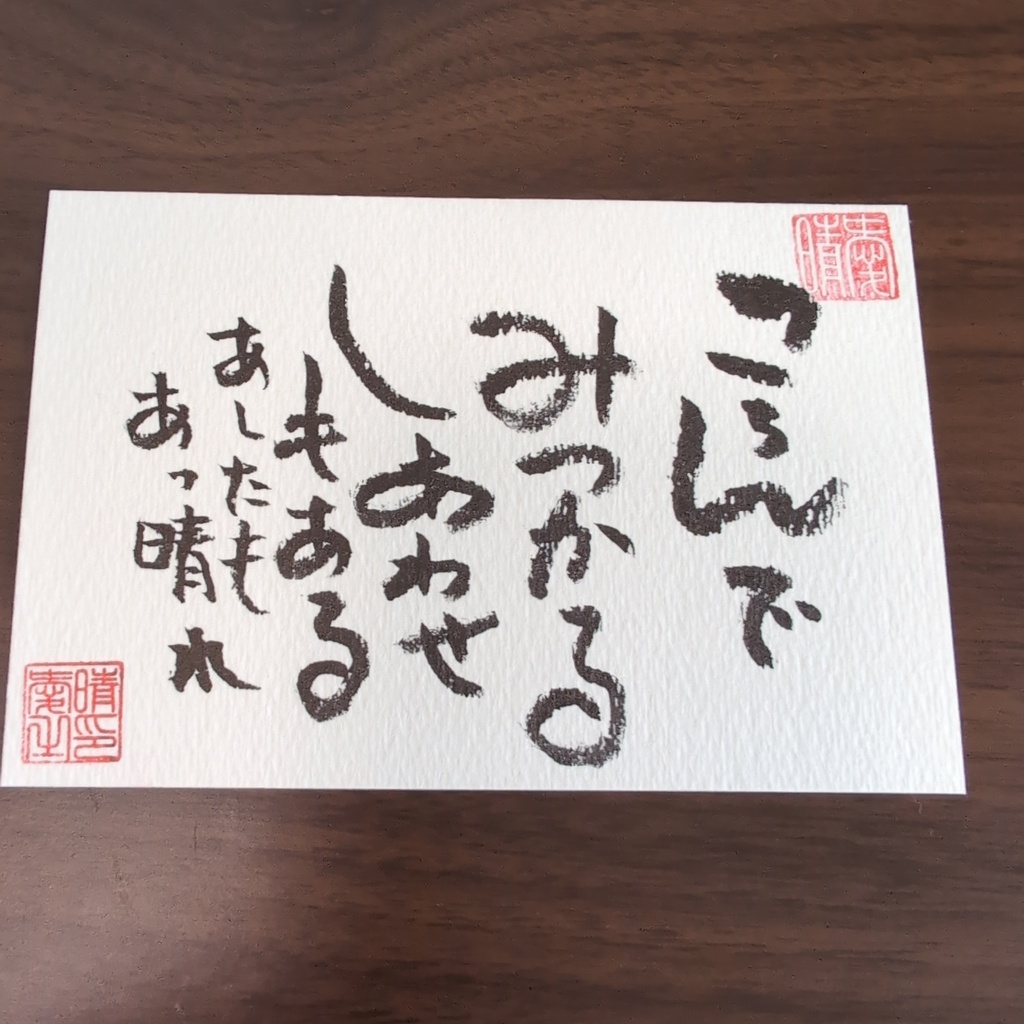 ころんで
みつかる
しあわせ
もある
あしたも
あっ晴れ